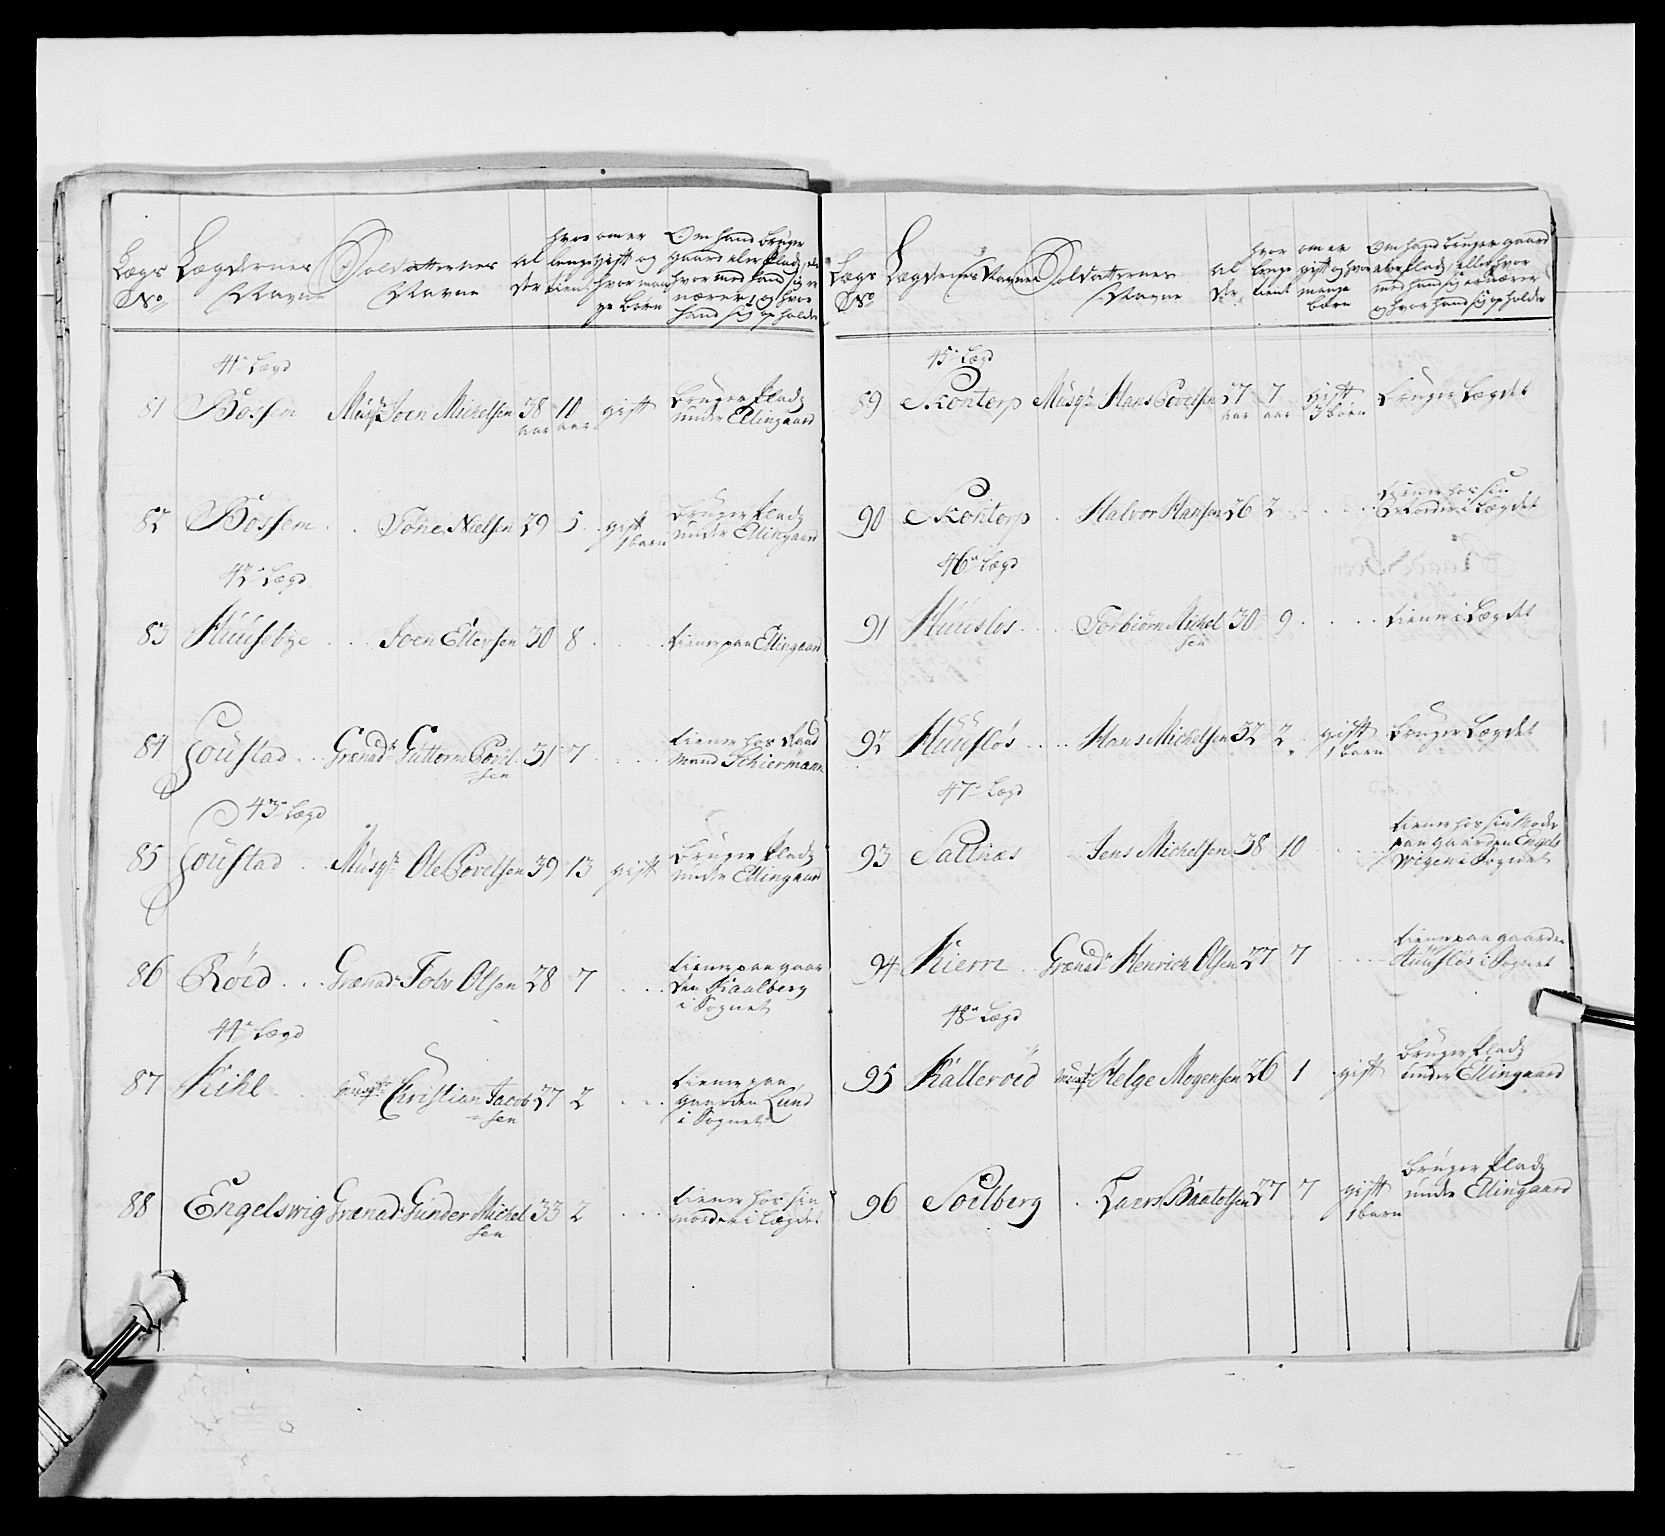 Lægs No
Lægdernes Navne
Soldatternes Navne
Al der
hvor lenge tient
om er gift og hvor mange børn
Om hand bruger gaard eler Plads, eler hvor med hand sig er nærer, og hvor hand sig opholder
41de Lægd
81 Bossem Musqr Joen Michelsen 38 aar 10 aar gift bruger Plads under Ellingaard
82 Bossem . . Tone Nielsen 29 5 . gift 1 barn bruger Plads under Ellingaard
42de Lægd
83 Huusebye . . . Joen Ellevsen 30 8 . . . . tiener paa Ellingaard
84 Joustad . . . Grænadr Guttorm Povel= sen 31 7 . . . . tiener hos Raad mand Schiermann
43de Lægd
85 Joustad . . Musqr Ole Povelsen 39 13 gift bruger Plads under Ellingaard
86 Röed . . . Grænadr Tobr Olsen 28 7 . . . tiener paa gaar den Kaalberg i Sognet
44de Lægd
87 Kihl . . . Musqr Christian Jacob= sen 27 2 . . . tiener paa gaarden Lund i Sognet
88 Engelswig Grænadr Gunder Michel sen 33 2 . . . tiener hos sin moder i Lægdet
Lægs No
Lægdernes Navne
Soldatternes Navne
Al der
hvor lenge tient
om er gift og hvor mange børn
Om hand bruger gaard eler Plads, eller hvor med hand sig er nærer og hvor hand sig opholder
45de Lægd
89 Skontorp Musqr Hans Povelsen 37 aar 7 aar gift 3 børn bruger Lægdet
90 Skontorp . Halvor Hansen 26 2 . . . . tiener hos sin i Lægdet
46de Lægd
91 Huusløs . . . . Torbiörn Michel sen 30 9 . . . . tiener i Lægdet
92 Huusløs . . . . Hans Michelsen 32 2 . gift 1 barn bruger Lægdet
47de Lægd
93 Saltnæs . . Jens Michelsen 38 10 . . . tiener hos sin Moder paa gaarden Engels wigen i Sognet
94 Kierre . . Grænadr Henrich Olsen 27 7 . . . tiener paa gaarden Huusløs i Sognet
48de Lægd
95 Kalleröed Musqr Helge Mogensen 26 1 gift bruger Plads under Ellingaard
96 Soelberg . Laers 27 7 gift 1 barn bruger Plads under Ellingaard